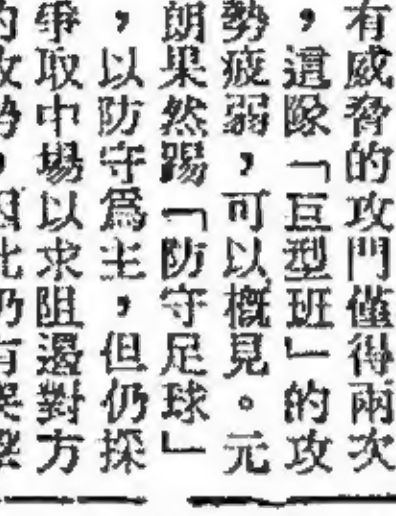 有威脅的攻門僅得兩次
，這隊「巨型班」的攻
勢疲弱，可以概見。元
朗果然踢「防守足球」
，以防守爲主，但仍採
爭取中場以求阻遏對方
的攻勢，因此仍有